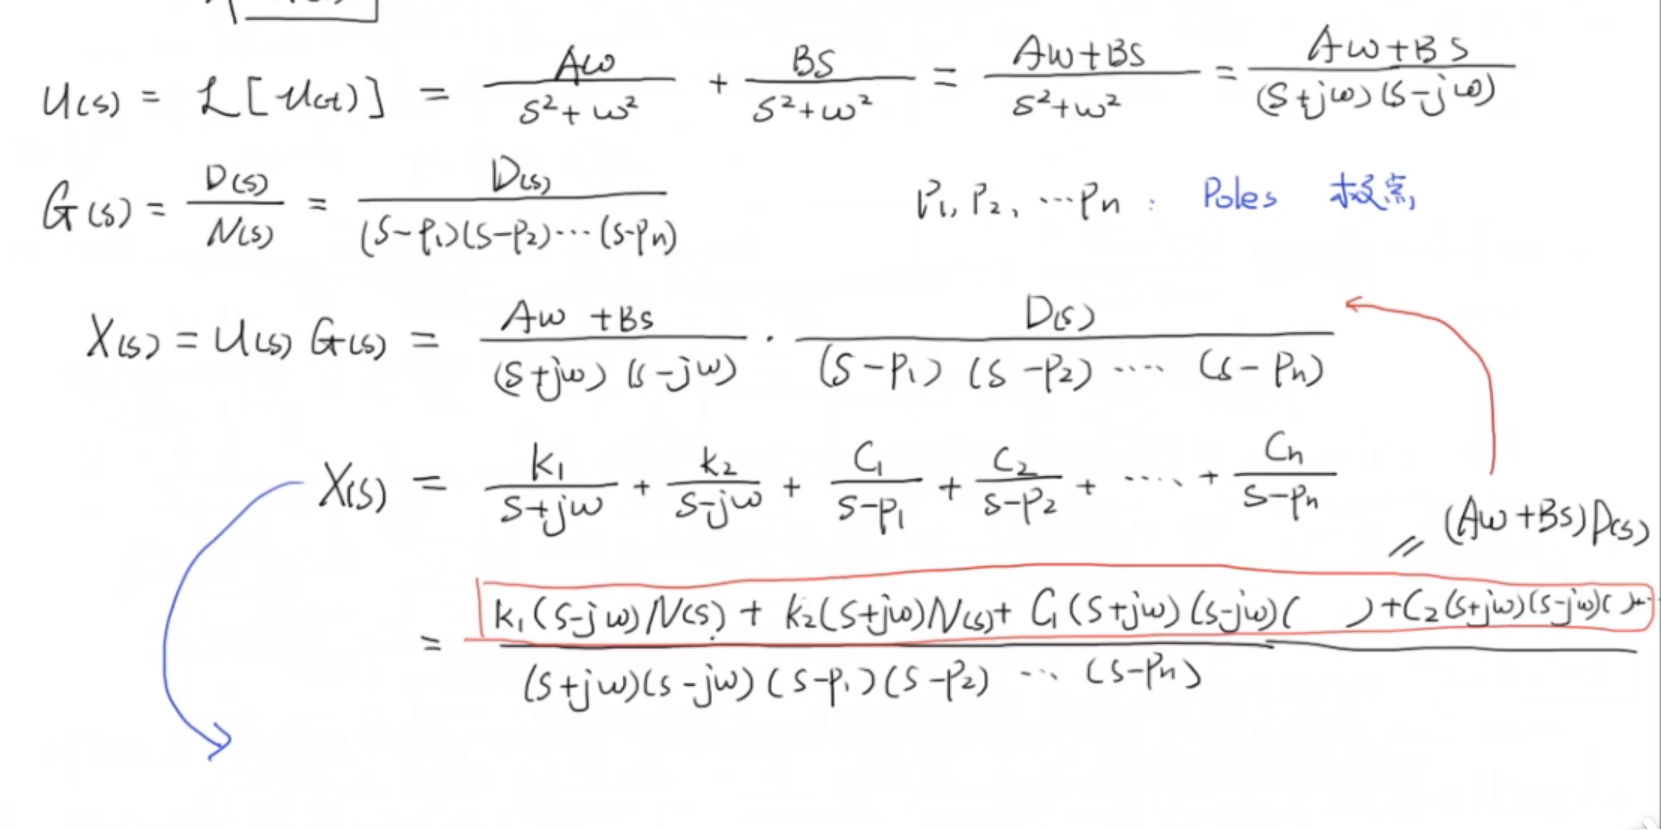 U(s) = ℒ[u(t)] = Aω/(s²+ω²) + BS/(s²+ω²) = (Aω+BS)/(s²+ω²) = (Aω+BS)/((s+jω)(s-jω))
G(s) = D(s)/N(s) = D(s)/((s-p₁)(s-p₂)···(s-pn)) P₁, P₂, ···Pn : Poles 极点
X(s) = U(s) G(s) = (Aω+BS)/((s+jω)(s-jω)) · D(s)/((s-p₁)(s-p₂)····(s-pn))
X(s) = k₁/(s+jω) + k₂/(s-jω) + C₁/(s-p₁) + C₂/(s-p₂) + ···· + Cn/(s-pn)
// (Aω+BS)D(s)
= (k₁(s-jω)N(s) + k₂(s+jω)N(s) + C₁(s+jω)(s-jω)( ) + C₂(s+jω)(s-jω)( )+··)/((s+jω)(s-jω)(s-p₁)(s-p₂)···(s-pn))